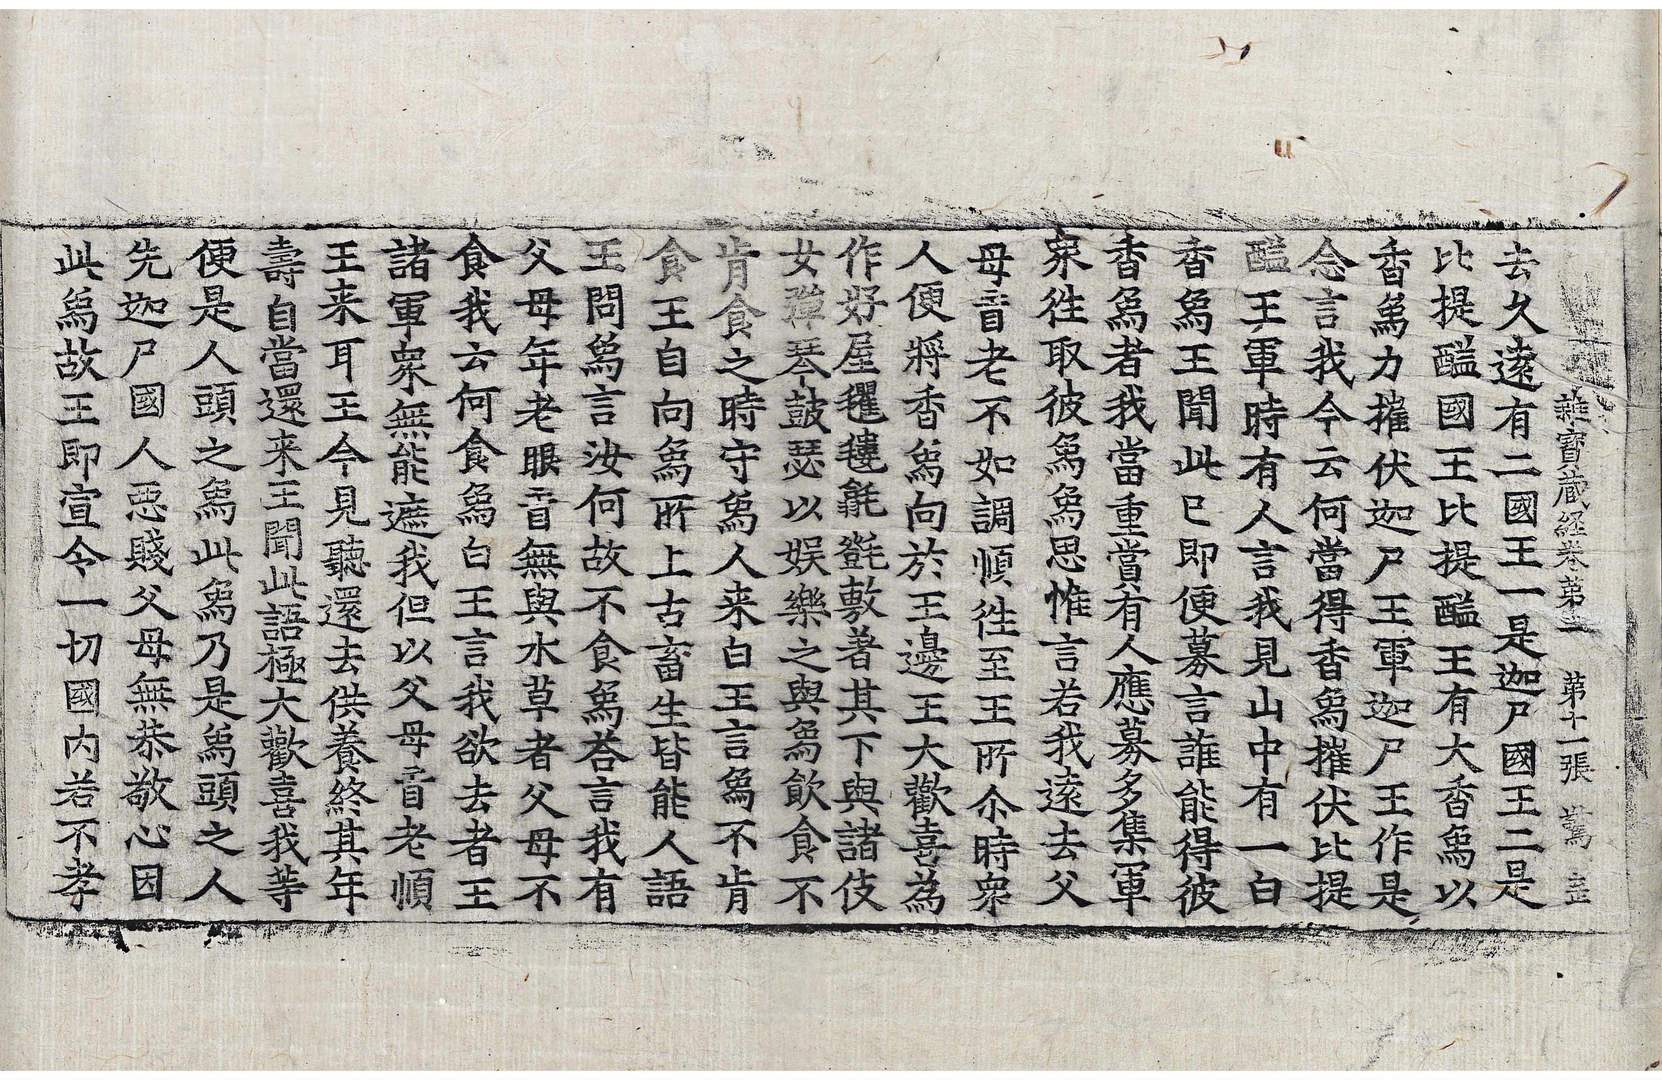 雜寶藏経卷第二 第十一張 驚
去久遠有二國王一是迦尸國王二是
比提醯國王比提醯王有大香鳥以
香鳥力摧伏迦尸王軍迦尸王作是
念言我今云何當得香鳥摧伏比提
醯王軍時有人言我見山中有一白
香鳥王聞此已即便募言誰能得彼
香鳥者我當重賞有人應募多集軍
衆徃取彼鳥鳥思惟言若我遠去父
母盲老不如調順徃至王所尒時衆
人便將香鳥向於王邊王大歡喜為
作好屋氍毺毾㲪敷著其下與諸伎
女彈琴鼓瑟以娱樂之與鳥飲食不
肯食之時守鳥人来白王言鳥不肯
食王自向鳥所上古畜生皆能人語
王問鳥言汝何故不食鳥荅言我有
父母年老眼盲無與水草者父母不
食我云何食鳥白王言我欲去者王
諸軍衆無能遮我但以父母盲老順
王来耳王今見聽還去供養終其年
壽自當還来王聞此語極大歡喜我等
便是人頭之鳥此鳥乃是鳥頭之人
先迦尸國人惡賤父母無恭敬心因
此鳥故王即宣令一切國内若不孝